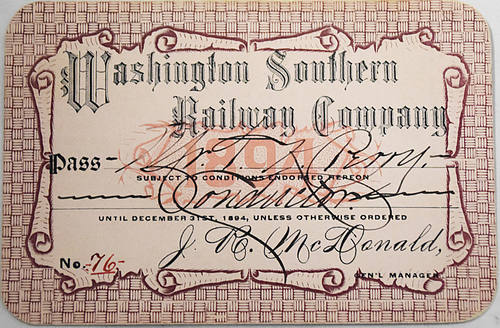 Washington Southern
Railway Company
Pass - Mr. T. Perry.
SUBJECT TO CONDITIONS ENDORSED HEREON
Conductor
UNTIL DECEMBER 31ST, 1894, UNLESS OTHERWISE ORDERED
J. R. McDonald,
No. 76 GEN'L MANAGER